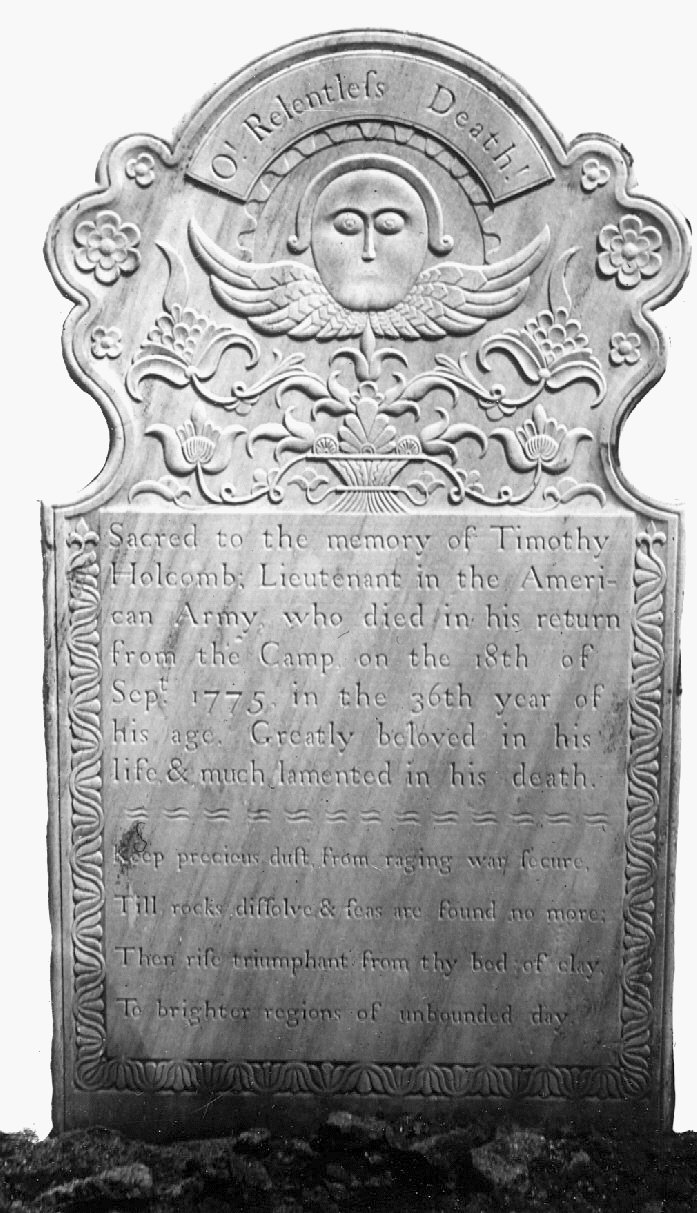 O! Relentleſs Death!
Sacred to the memory of Timothy
Holcomb; Lieutenant in the Ameri-
can Army, who died in his return
from the Camp, on the 18th of
Sept. 1775, in the 36th year of
his age. Greatly beloved in his
life & much lamented in his death.
Keep precious duſt, from raging war ſecure,
Till rocks diſſolve & ſeas are found no more;
Then riſe triumphant from thy bed of clay,
To brighter regions of unbounded day.